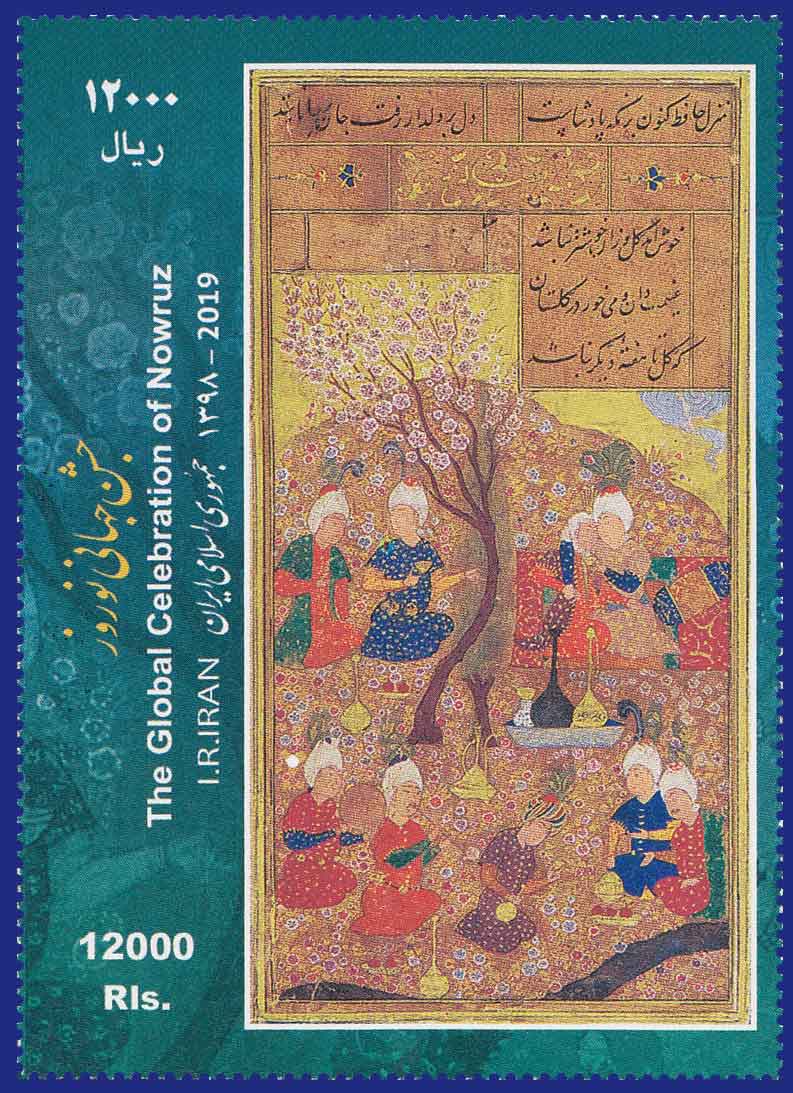 ۱۲۰۰۰
ریال
جشن جهانی نوروز
The Global Celebration of Nowruz
I.R.IRAN جمهوری اسلامی ایران ۱۳۹۸ – 2019
12000
Rls.
منزل حافظ کنون بزمگه پادشاست
دل بر دلدار رفت جان بر جانانه شد
خوش آمد گل وزان خوشتر نباشد
غنیمت دان و می خور در گلستان
که گل تا هفته دیگر نباشد